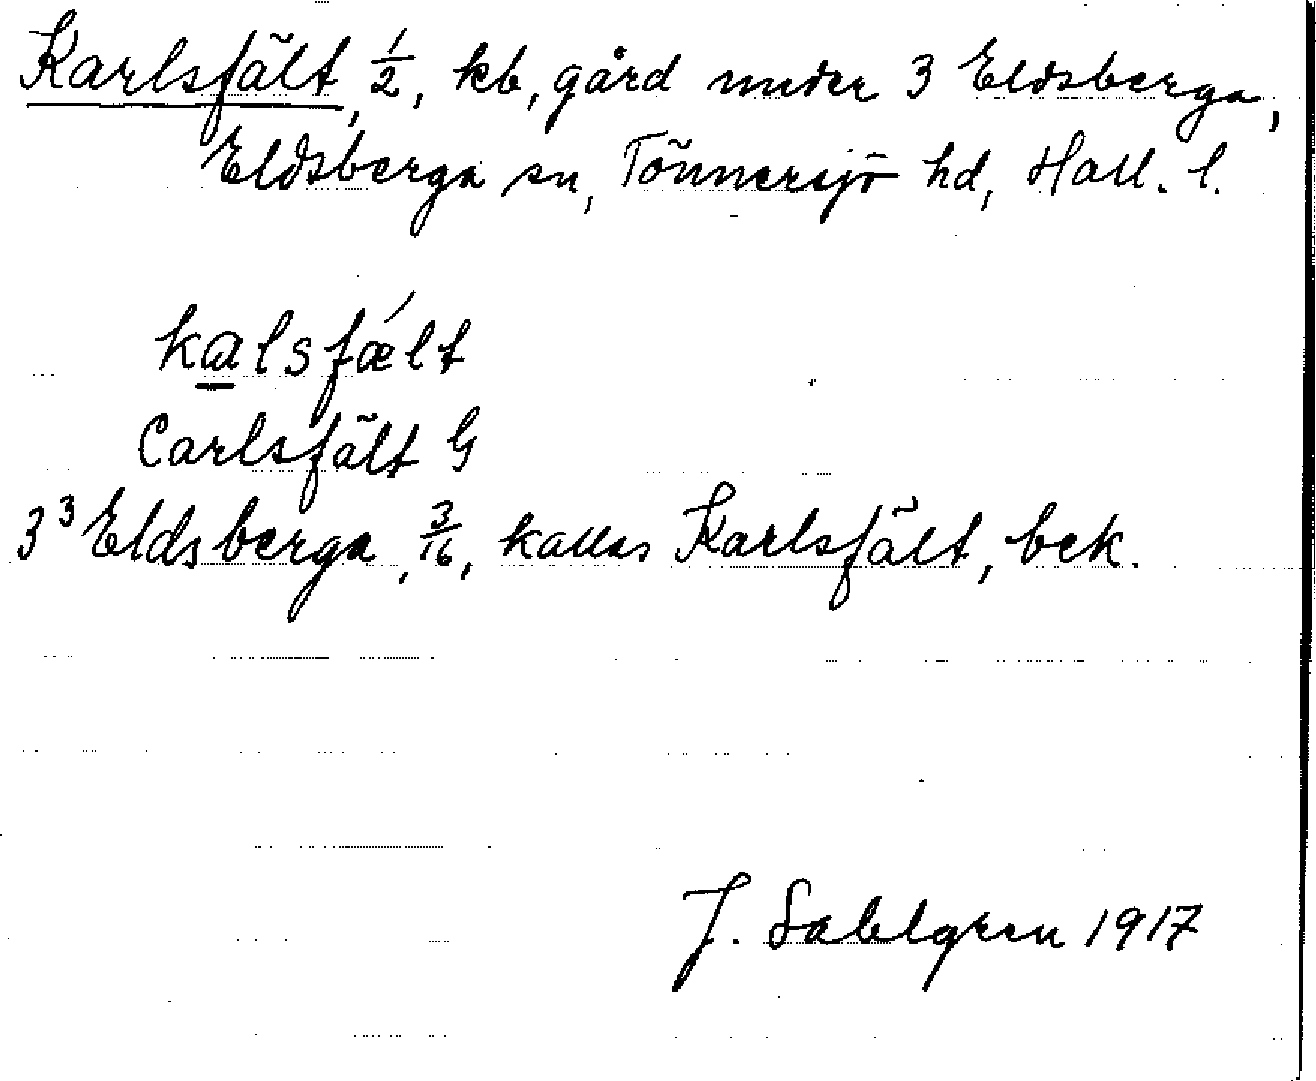 Karlsfält, 1/2, kb, gård under 3 Eldsberga,
Eldsberga sn, Tönnersjö hd, Hall. l.
kalsfǽlt
Carlsfält G
3³ Eldsberga, 3/16, kallas Karlsfält, bek.
J. Sahlgren 1917